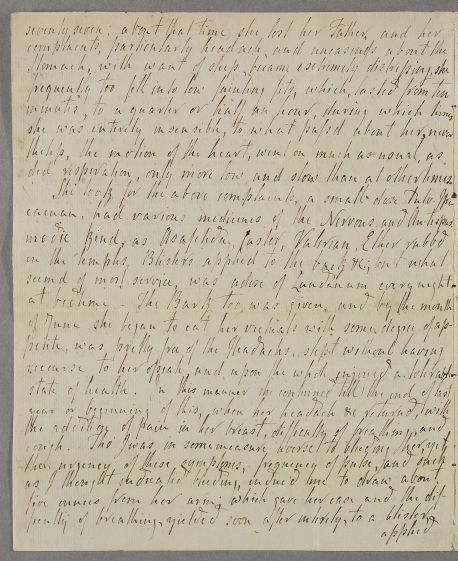 seventy seven; about that time she lost her Father, and her
complaints, particularly headach, and uneasiness about the
Stomach, with want of sleep became extremely distressing, she
frequently too fell into low fainting fits, which, lasted from ten
minutes, to a quarter or half an hour, during which time
she was entirely insensible, to what passd about her, never
theless, the motion of the heart, went on much as usual, as
did respiration, only more low and slow than at other times.
She took for the above complaints, a small dose Pulv. Ipe
cacuan, had various medicines of the Nervous and Antispas
modic kind, as Asafœtida, Castor, Valerian, Ether rubbd
on the temples, Blisters applied to the back &c; but what
seemd of most service, was a dose of Laudanum every night
at bedtime - The Bark too, was given, and by the month
of June she began to eat her victuals with some degree of ap=
petite, was pretty free of the Headachs, slept without having
recourse to her opiate, and upon the whole enjoyed a tolerable
state of health. In this manner she continued till the end of last
year or beginning of this, when her headach &c returned, with
the addition of pain in her breast, difficulty of breathing, and
cough. Tho I was in some measure averse to bleeding her, yet
the urgency of these symptoms, frequency of pulse, and such
as I thought indicated bleeding, induced me to draw about
five ounces from her arm; which gave her ease and the dif-
ficulty of breathing yielded soon after intirely to a blister
applied